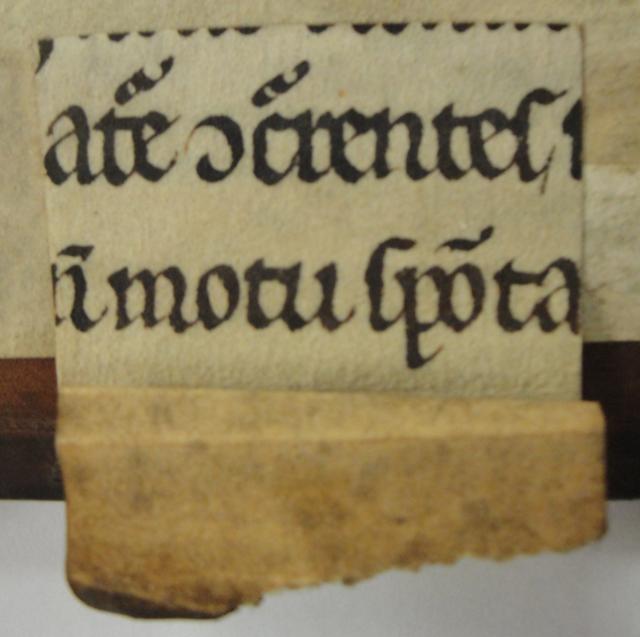 atē ɔc̄rentes
n̄ motu spōta